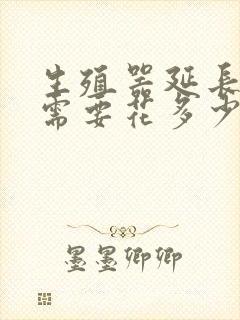 生殖器延长
需要花多少
墨墨卿卿